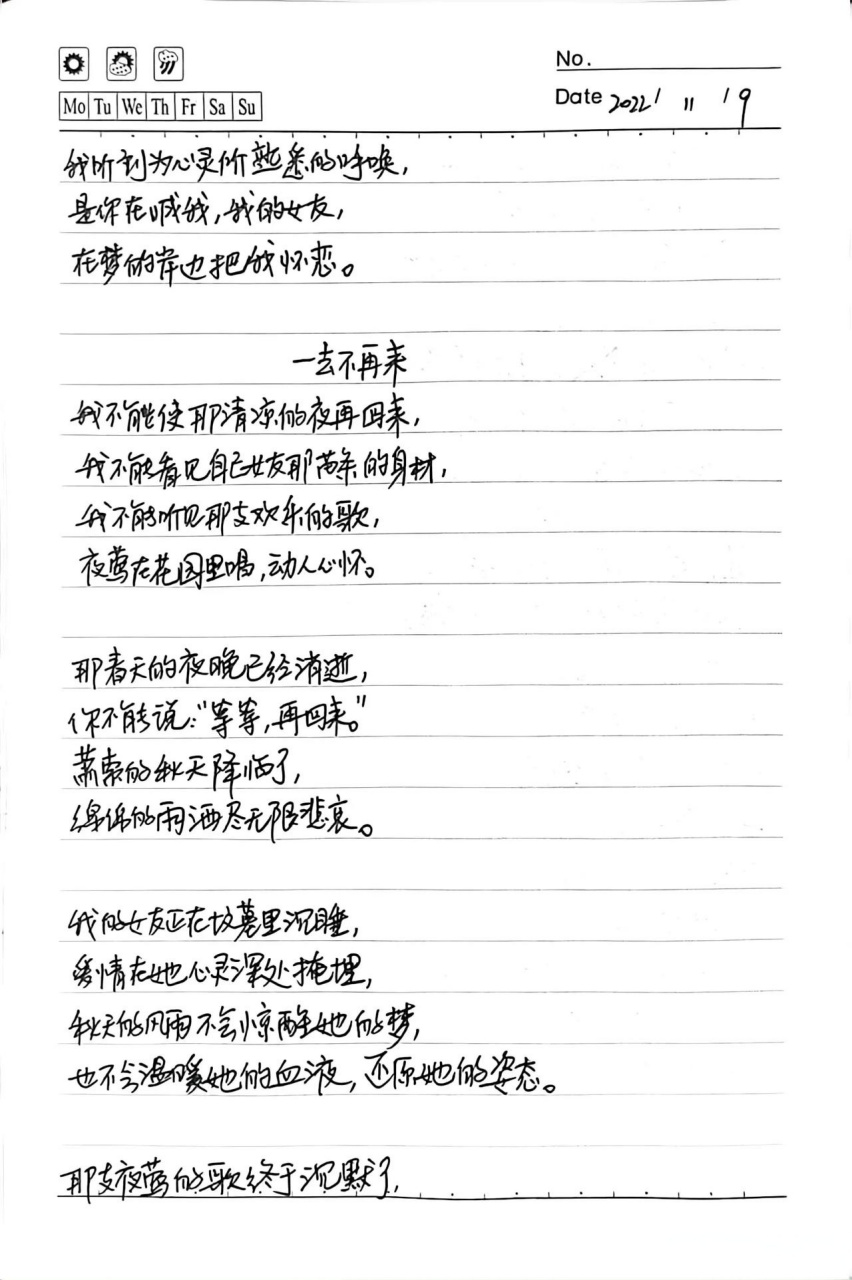 No.
Mo Tu We Th Fr Sa Su
Date 2022 / 11 / 9
我听到为心灵所熟悉的呼唤,
是你在喊我,我的女友,
在梦的岸边把我怀恋。
一去不再来
我不能使那清凉的夜再回来,
我不能看见自己女友那苗条的身材,
我不能听见那支欢乐的歌,
夜莺在花园里唱,动人心怀。
那春天的夜晚已经消逝,
你不能说:“等等,再回来。”
萧索的秋天降临了,
绵绵的雨洒尽无限悲哀。
我的女友正在坟墓里沉睡,
爱情在她心灵深处掩埋,
秋天的风雨不会惊醒她的梦,
也不会温暖她的血液,还原她的姿态。
那支夜莺的歌终于沉默了,